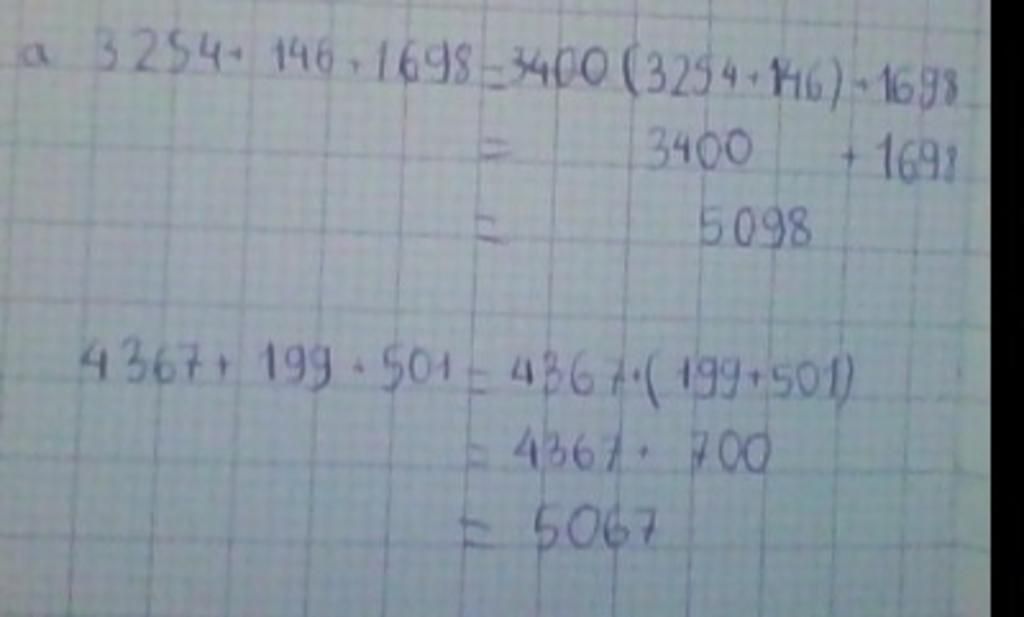 a 3254 + 146 + 1698 = 3400 (3254 + 146) + 1698
= 3400 + 1698
= 5098
4367 + 199 + 501 = 4367 + (199 + 501)
= 4367 + 700
= 5067